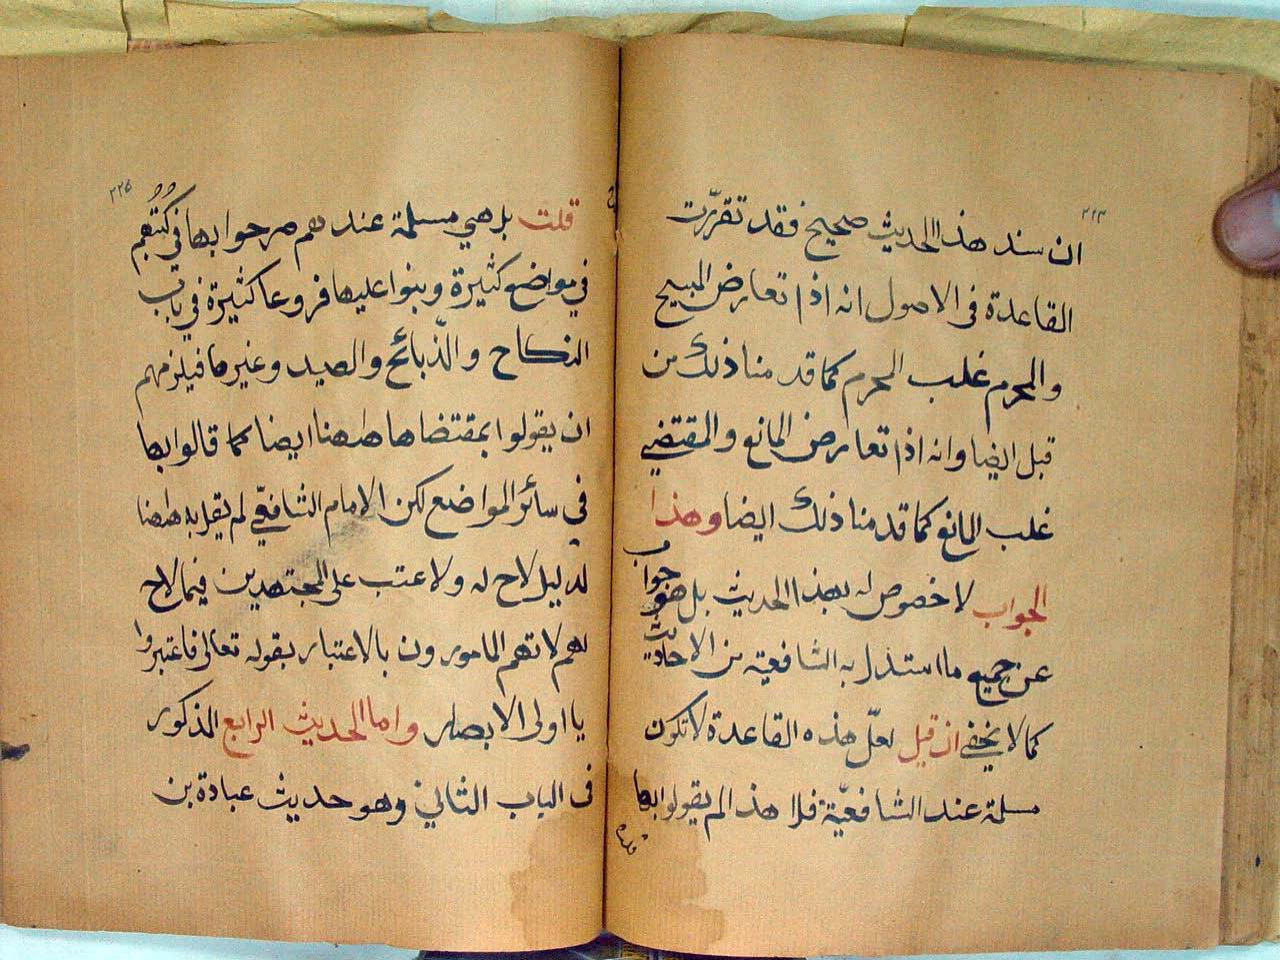 ٢٢٣
ان سند هذا الحديث صحيح فقد تقررت
القاعدة في الاصول انه اذا تعارض المبيح
والمحرم غلب المحرم كما قدمنا ذلك من
قبل ايضا وانه اذا تعارض المانع والمقتضي
غلب المانع كما قدمنا ذلك ايضا وهذا
الجواب لا خصوص له بهذا الحديث بل هو جواب
عن جميع ما استدل به الشافعية من الاحاديث
كما لا يخفى ان قيل لعل هذه القاعدة لا تكون
مسلمة عند الشافعية فلا هذا لم يقولوا بها
قلت
٢٢٥
قلت بل هي مسلمة عندهم صرحوا بها في كتبهم
في مواضع كثيرة وبنوا عليها فروعا كثيرة في باب
النكاح والذبائح والصيد وغيرها فيلزمهم
ان يقولوا بمقتضاها ههنا ايضا كما قالوا بها
في سائر المواضع لكن الامام الشافعي لم يقل به ههنا
لدليل لاح له ولا عتب على المجتهدين فيما لاح
لهم لانهم المامورون بالاعتبار بقوله تعالى فاعتبروا
يا اولى الابصار واما الحديث الرابع المذكور
في الباب الثاني وهو حديث عبادة بن